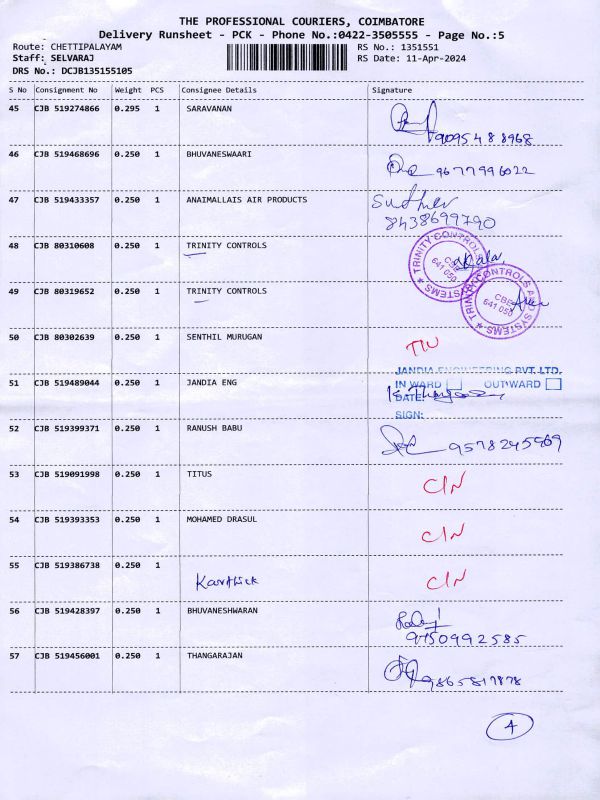 THE PROFESSIONAL COURIERS, COIMBATORE
Delivery Runsheet - PCK - Phone No.:0422-3505555 - Page No.:5
Route: CHETTIPALAYAM RS No.: 1351551
Staff: SELVARAJ RS Date: 11-Apr-2024
DRS No.: DCJB135155105
S No Consignment No Weight PCS Consignee Details Signature
45 CJB 519274866 0.295 1 SARAVANAN
9095488968
46 CJB 519468696 0.250 1 BHUVANESWAARI
9677996022
47 CJB 519433357 0.250 1 ANAIMALLAIS AIR PRODUCTS
8438699790
48 CJB 80310608 0.250 1 TRINITY CONTROLS
TRINITY CONTROLS SYSTEMS CBE 641 050
49 CJB 80319652 0.250 1 TRINITY CONTROLS
TRINITY CONTROLS AND SYSTEMS CBE 641 050
50 CJB 80302639 0.250 1 SENTHIL MURUGAN
JANDIA ENGINEERING PVT. LTD.
51 CJB 519489044 0.250 1 JANDIA ENG IN WARD OUTWARD
DATE:
SIGN:
52 CJB 519399371 0.250 1 RANUSH BABU
53 CJB 519091998 0.250 1 TITUS
C/N
54 CJB 519393353 0.250 1 MOHAMED DRASUL
C/N
55 CJB 519386738 0.250 1
Karthick C/N
56 CJB 519428397 0.250 1 BHUVANESHWARAN
9750992585
57 CJB 519456001 0.250 1 THANGARAJAN
4